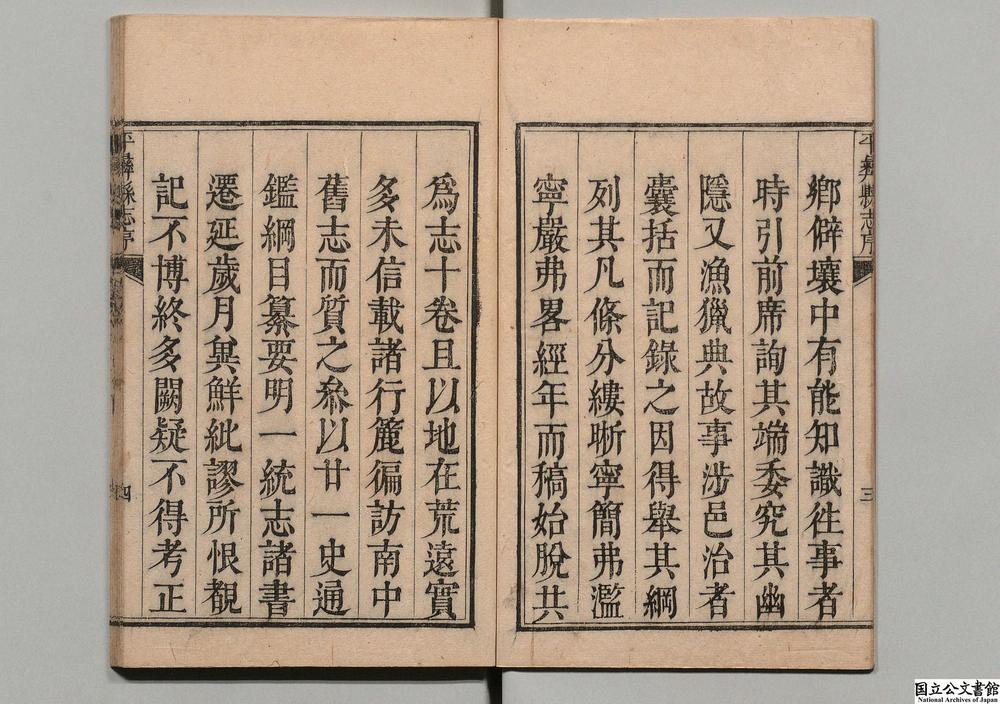 平彝縣志序
三
鄉僻壤中有能知識徃事者
時引前席詢其端委究其幽
隱又漁獵典故事涉邑治者
囊括而記錄之因得舉其綱
列其凡條分縷晰寧簡弗濫
寧嚴弗畧經年而稿始脫共
爲志十卷且以地在荒遠實
多未信載諸行簏徧訪南中
舊志而質之叅以廿一史通
鑑綱目纂要明一統志諸書
遷延歲月兾鮮紕謬所恨覩
記不博終多闕疑不得考正
平彝縣志序
四
国立公文書館
National Archives of Japan